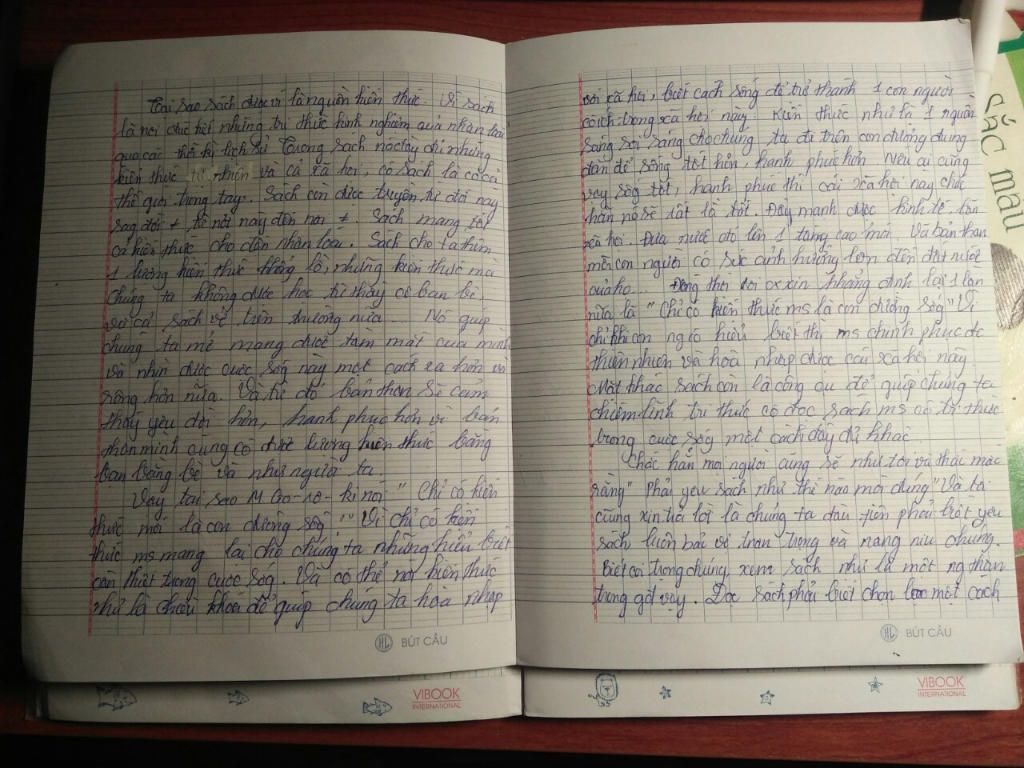 Tại sao sách được ví là nguồn kiến thức. Vì sách
là nơi chứ hết những tri thức kinh nghiệm của nhân loại
qua các thời kỳ lịch sử. Trong sách nó lấy đi những
kiến thức tự nhiên và cả xã hội, có sách là có cả
thế giới trong tay. Sách còn được truyền từ đời này
sag đời ≠ từ nơi này đến nơi ≠. Sách mang tất
cả kiến thức cho dân nhân loại. Sách cho ta thêm
1 lượng kiến thức khổng lồ, những kiến thức mà
chúng ta không được học từ thầy cô bạn bè,
và cả sách vở trên trường nữa... Nó giúp
chúng ta mở mang được tầm mắt của mình
và nhìn được cuộc sốg này một cách xa hơn và
rộng hơn nữa. Và từ đó bản thân sẽ cảm
thấy yêu đời hơn, hạnh phúc hơn vì bản
thân mình cũng có được lượng kiến thức bằng
bạn bằng bè và như người ta.
Vậy tại sao M Go-rơ-ki nói "Chỉ có kiến
thức mới là con đường sốg" Vì chỉ có kiến
thức ms mang lại cho chúng ta những hiểu biết
cần thiết trong cuộc sốg. Và có thể nói kiến thức
như là chiều khoá để giúp chúng ta hoà nhập
với xã hội, biết cách sống để trở thành 1 con người
có ích trong xã hội này. Kiến thức như là 1 nguồn
sáng soi sáng cho chúng ta đi trên con đường đúng
đắn để sống tốt hơn, hạnh phúc hơn. Nếu ai cũng
sốg tốt, hạnh phúc thì cái xã hội này chắc
hẳn nó sẽ rất là tốt. Đẩy mạnh được kinh tế,
xã hội. Đưa nước đó lên 1 tầng cao mới. Và bản thân
mỗi con người có sức ảnh hưởng lớn đến đất nước
của họ... Đồng thời xin khẳng định lại 1 lần
nữa là "Chỉ có kiến thức ms là con đường sốg" Vì
chỉ khi con ng có hiểu biết thì ms chinh phục đc
thiên nhiên và hoà nhập được cái xã hội này
Mặt khác sách còn là công cụ để giúp chúng ta
chiếm lĩnh tri thức có đọc sách ms có tri thức
trong cuộc sốg một cách đầy đủ khác
Chắc hẳn mọi người cũng sẽ như tôi và thắc mắc
rằng "Phải yêu sách như thế nào mới đúng" Và ta
cũng xin trả lời là chúng ta đầu tiên phải biết yêu
sách luôn bảo vệ trân trọng và nâng niu chúng.
Biết coi trọng chúng, xem sách như là một ng thân
trong gđ vậy. Đọc sách phải biết chọn lọc một cách
BÚT CÂU
BÚT CÂU
VIBOOK
INTERNATIONAL
VIBOOK
INTERNATIONAL
Sắc màu